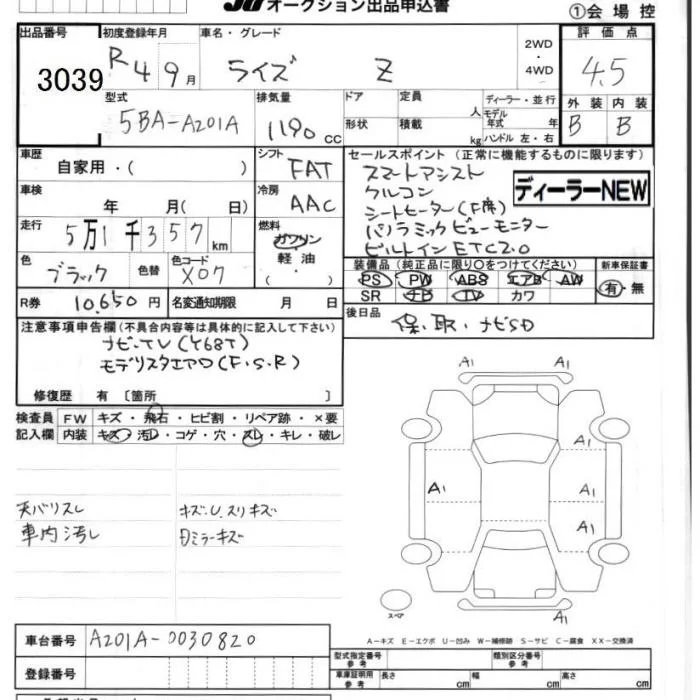 オークション出品申込書
①会場控
出品番号 初度登録年月 車名・グレード 2WD・4WD 評価点
3039 R4 9月 ライズ Z 4.5
型式 排気量 ドア 定員 人 ディーラー・並行 外装 内装
5BA-A201A 1190cc 形状 積載 kg モデル年式 年 ハンドル 左・右 B B
車歴 シフト セールスポイント(正常に機能するものに限ります)
自家用・( ) FAT スマートアシスト
車検 冷房 クルコン ディーラーNEW
年 月( 日) AAC シートヒーター(F席)
走行 燃料 パノラミックビューモニター
5万1千357km ガソリン ビルトインETC2.0
色 色替 色コード 軽油 装備品(純正品に限り○をつけてください) 新車保証書
ブラック X07 ( ) PS PW ABS エアB AW 有・無
SR ナビ TV カワ
R券 10,650円 名変通知期限 月 日 後日品
保、取、ナビSD
注意事項申告欄(不具合内容等は具体的に記入して下さい)
ナビ・TV(Y68T)
モデリスタエアロ(F.S.R)
修復歴 有 〔箇所 〕
検査員 FW キズ・飛石・ヒビ割・リペア跡・×要
記入欄 内装 キズ・汚レ・コゲ・穴・スレ・キレ・破レ
A1 A1
A1
A1 A1
A1
天バリスレ キズU、スリキズ
車内汚し Dミラーキズ
スペア
A-キズ E-エクボ U-凹み W-補修跡 S-サビ C-腐食 XX-交換済
車台番号 A201A-0030820
登録番号
型式指定番号 参考 類別区分番号 参考
車庫証明用 参考 長さ cm 幅 cm 高さ cm